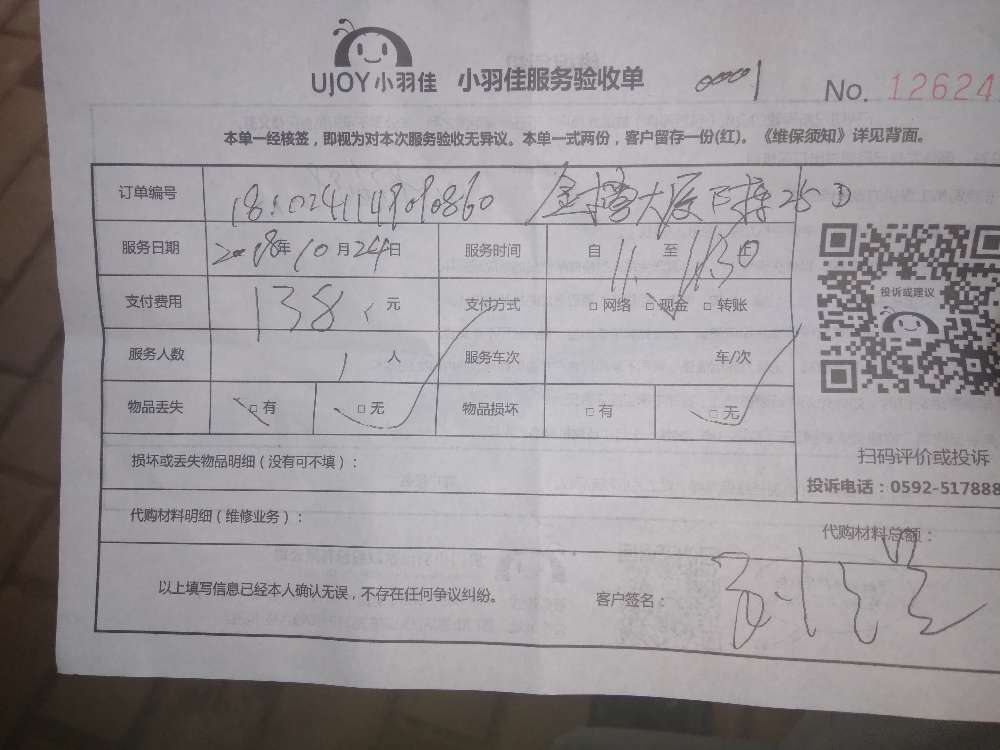 UJOY小羽佳 小羽佳服务验收单 00001 No. 12624
本单一经核签，即视为对本次服务验收无异议。本单一式两份，客户留存一份(红)。《维保须知》详见背面。
订单编号
服务日期 2018年10月24日 服务时间 自 11. 至
支付费用 138 元 支付方式 □ 网络 □ 现金 □ 转账
服务人数 1 人 服务车次 车/次
物品丢失 □ 有 □ 无 物品损坏 □ 有 □ 无
投诉或建议
扫码评价或投诉
投诉电话：0592-517888
损坏或丢失物品明细（没有可不填）：
代购材料明细（维修业务）： 代购材料总额：
以上填写信息已经本人确认无误，不存在任何争议纠纷。 客户签名：